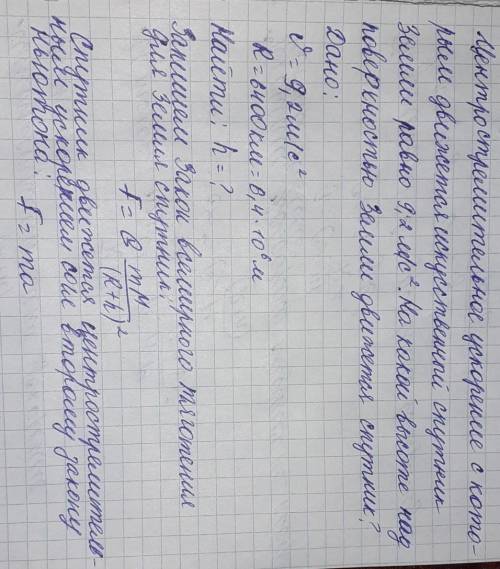 Центростремительное ускорение с кото-
рым движется искусственный спутник
Земли равно 9,2 м/с². На какой высоте над
поверхностью Земли движется спутник?
Дано:
υ = 9,2 м/с²
R = 6400км = 6,4 · 10⁶ м
Найти: h = ?
Запишем Закон всемирного тяготения
для Земля спутник:
F = G mM/(R+h)²
Спутник движется центростремитель-
ным ускорением сои второму закону
Ньютона: F = ma